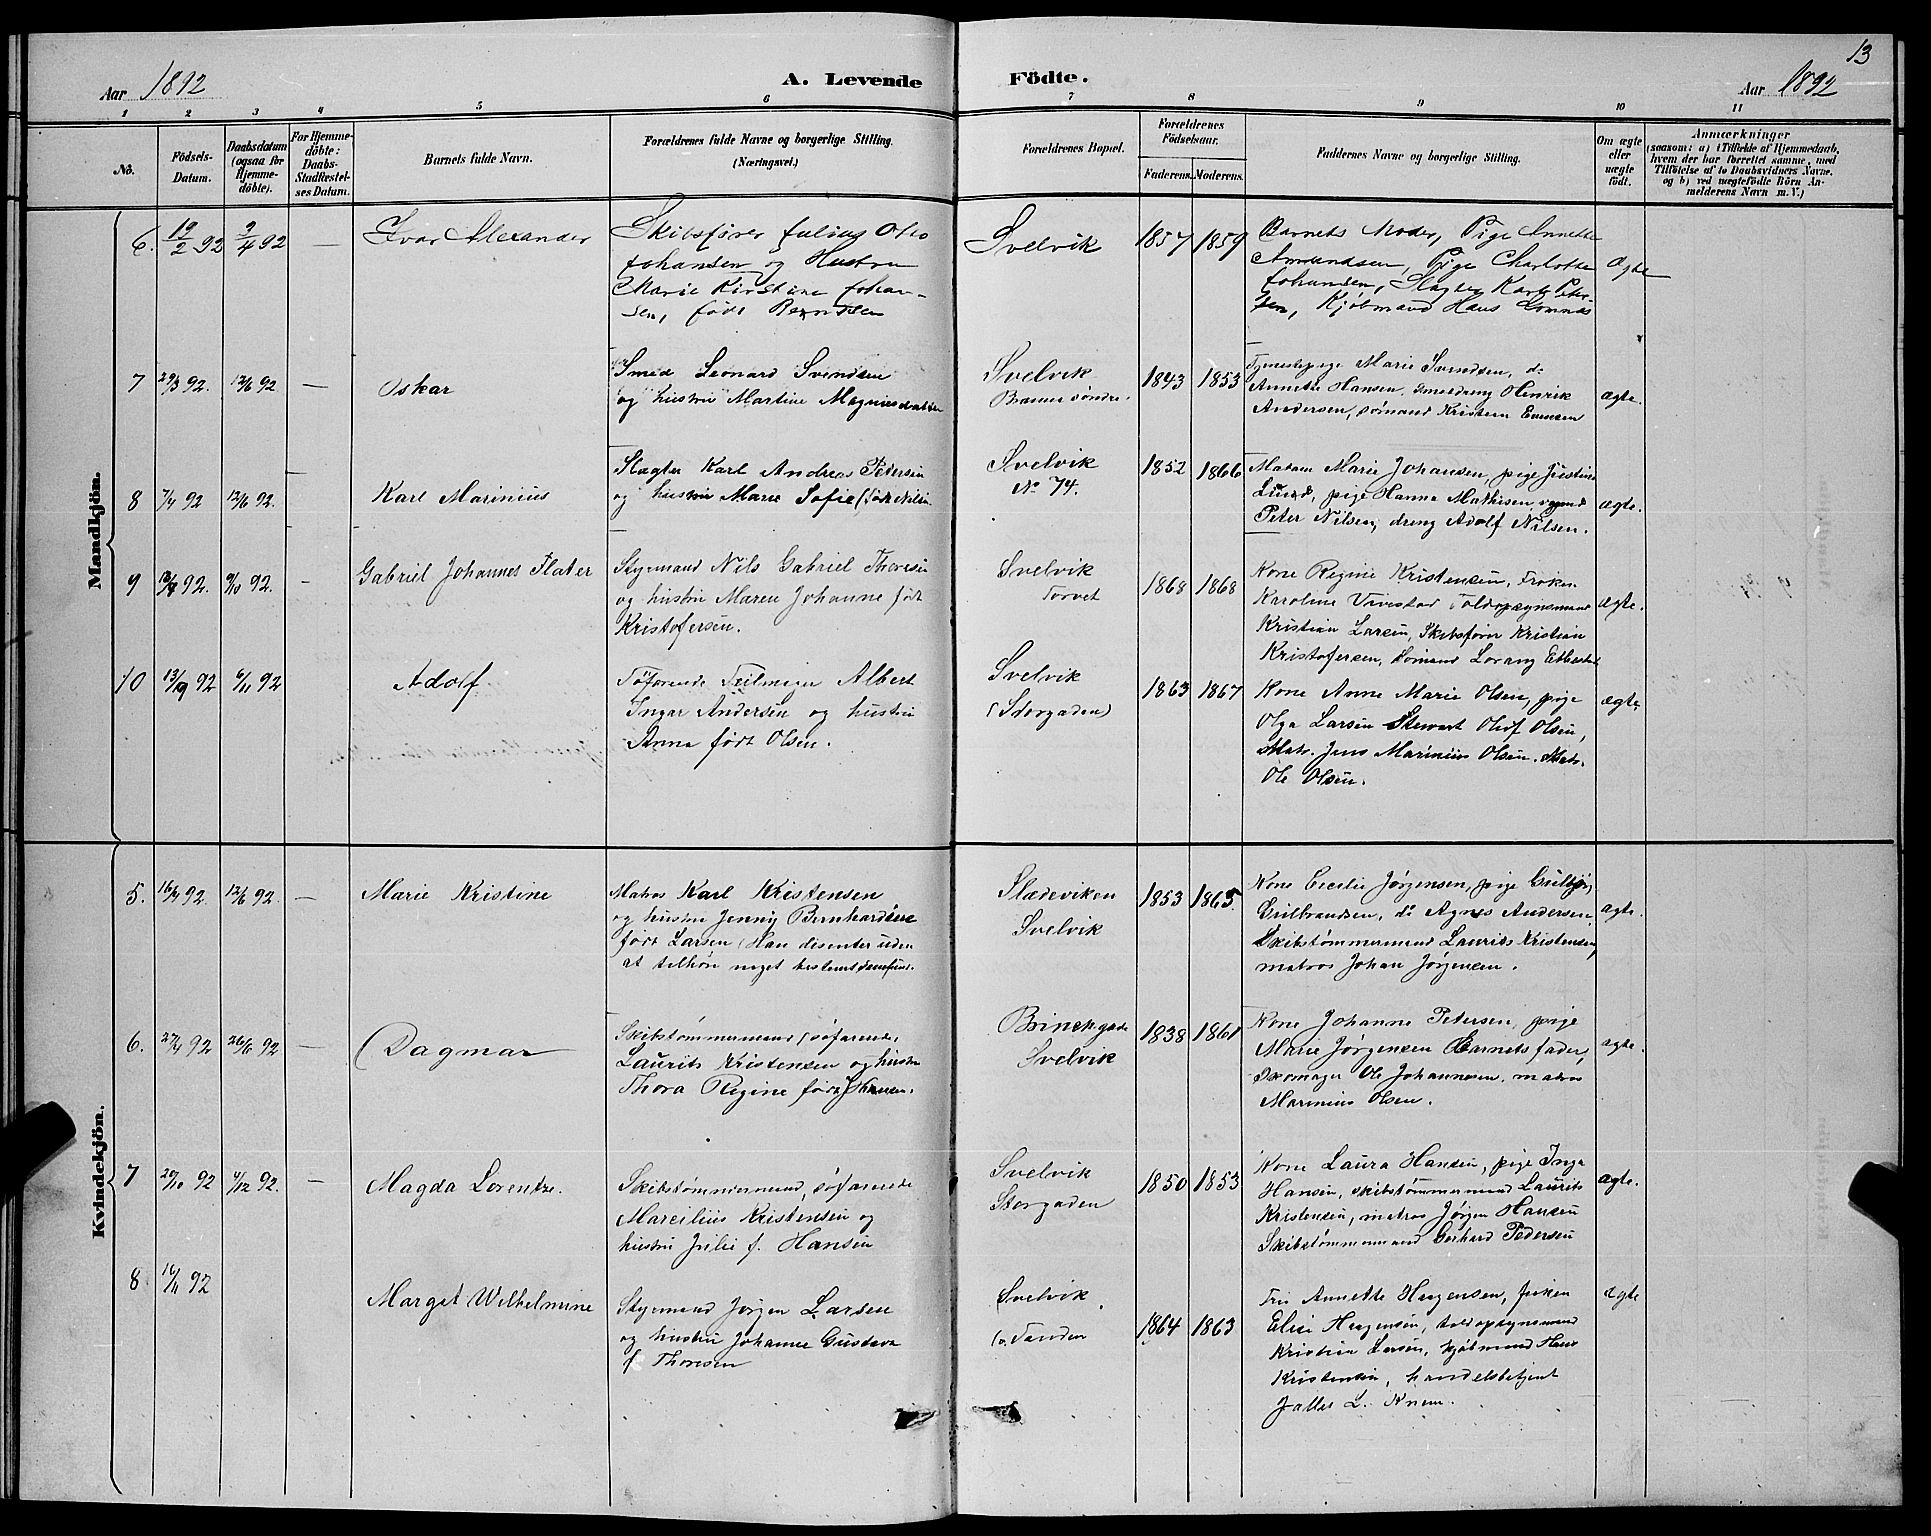 13
Aar 1892
A. Levende
Födte.
Aar 1892
1 2 3 4 5 6 7 8 9 10 11
No.
Födsels-
Datum.
Daabsdatum
(ogsaa for
Hjemme-
döbte).
For Hjemme-
döbte:
Daabs-
Stadfæstel-
ses Datum.
Barnets fulde Navn.
Forældrenes fulde Navne og borgerlige Stilling.
(Næringsvei.)
Forældrenes Bopæl.
Forældrenes
Födselsaar.
Faderens. Moderens.
Faddernes Navne og borgerlige Stilling.
Om ægte
eller
uægte
födt.
Anmærkninger
(saasom: a) i Tilfælde af Hjemmedaab,
hvem der har forrettet samme, med
Tilföielse af to Daabsvidners Navne,
og b) ved uægtefödte Börn An-
melderens Navn m. V.)
Mandkjön.
6. 19/2 92 3/4 92 — Ivar Alexander
Skibsfører Julius Otto
Johansen og Hustru
Marie Kirstine Johan-
sen, født Berntsen
Svelvik
1857 1859
Barnets Moder, Pige Annette
Amundsen, Pige Charlotte
Johansen, Slagter Karl Peter-
sen, Kjøbmand Hans Lomnæs
Ægte
7 29/3 92. 12/6 92 — Oskar
Smed Leonard Svendsen
og hustru Martine Magnusdatter
Svelvik
søndre.
1843 1853
Tjenestepige Marie Svendsen, do
Annette Hansen, smeddreng Hinrik
Andersen, sømand Kristian Evensen
ægte.
8 7/4 92 12/6 92. Karl Marinius
Slagter Karl Andreas Pedersen
og hustru Marie Sofie (født Nilsen
Svelvik
No 74.
1852 1866
Madam Marie Johansen, pige Justine
Lund, pige Hanna Mathisen,
Peter Nilsen, dreng Adolf Nilsen.
ægte.
9 92. 9/10 92. — Gabriel Johannes Flater
Styrmand Nils Gabriel Thoresen
og hustru Maren Johanne født
Kristofersen.
Svelvik
Torvet
1868 1868
Kone Regine Kristensen, Frøken
Karoline Vivestad Toldopsynsmand
Kristian Larsen, Skibsfører Kristian
Kristofersen, Sømand Lorang
ægte.
10 13/9 92 6/11 92 Adolf
Søfarende Seilmager Albert
Ingar Andersen og hustru
Anna født Olsen.
Svelvik
(Storgaden)
1863 1867
Kone Anne Marie Olsen, pige
Olga Larsen Stewart Olof Olsen,
Matr. Jens Marinius Olsen. Matr.
Ole Olsen.
ægte
Kvindekjön.
5. 16/4 92. 12/6 92. — Marie Kristine
Matros Karl Kristensen
og hustru Jenny Bernhardine
født Larsen (Han disenter uden
at tilhøre noget bestemt samfund.
Sladeviken
Svelvik
1853 1865
Kone Cecilie Jørgensen, pige Gulbjør
Gulbrandsen, do Agnes Andersen,
Skibstømmermand Laurits Kristensen,
matros Johan Jørgensen.
ægte.
6. 27/4 92 26/6 92 — Dagmar
Skibstømmermand (søfarende)
Laurits Kristensen og hustru
Thora Regine født
Brinchgade
Svelvik
1838 1861
Kone Johanne Petersen, pige
Marie Jørgensen Barnets fader,
Skomager Ole Johannesen, matros
Marinius Olsen.
ægte.
7 20/10 92 4/12 92. — Magda Lorentze.
Skibstømmermand, søfarende
Marcilius Kristensen og
hustru Julie f. Hansen
Svelvik
Storgaden
1850 1853
Kone Laura Hansen, pige Inga
Hansen, skibstømmermand Laurits
Kristensen, matros Jørgen Hansen
Skibstømmermand Gerhard Pedersen
ægte.
8 16/11 92 Margit Wilhelmine
Styrmand Jørgen Larsen
og hustru Johanne Gustava
f. Thoresen
Svelvik
1864 1863
Fru Annette Hagensen, frøken
Elise Hagensen, toldopsynsmand
Kristian Larsen, kjøbmand Hans
Kristensen, handelsbetjent
L.
ægte